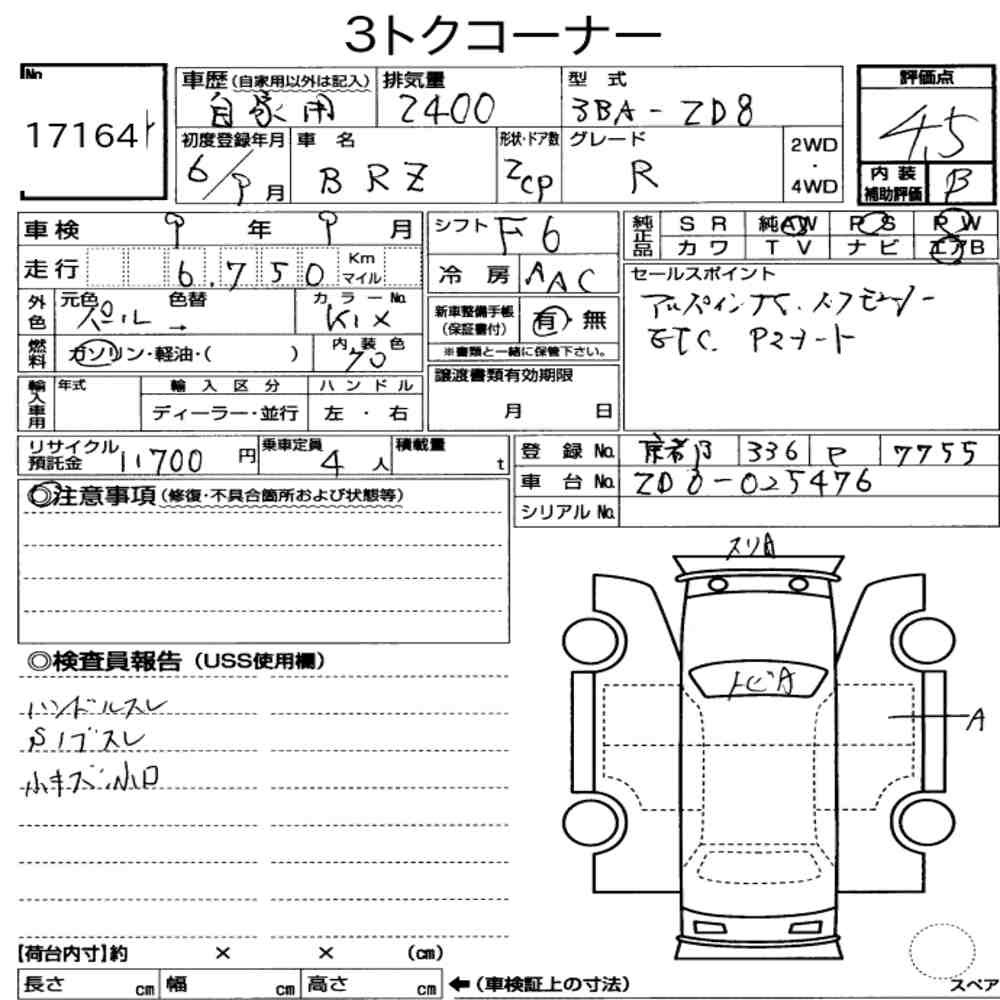 3トクコーナー
No.
17164
車歴 (自家用以外は記入) 排気量 型 式 評価点
自家用 2400 3BA-ZD8 4.5
初度登録年月 車 名 形状・ドア数 グレード
6/9月 BRZ 2CP R 2WD ・ 4WD
内装補助評価 B
車検 9 年 9 月 シフト F6
純正品 SR 純AW PS PW
カワ TV ナビ エアB
走行 6,750 Km マイル 冷房 AAC
外色 元色 色替 カラーNo.
パール → K1X
新車整備手帳 (保証書付) 有・無
※書類と一緒に保管下さい。
セールスポイント
ETC. Pスタート
燃料 ガソリン・軽油・( ) 内装色
70
譲渡書類有効期限
月 日
輸入車用 年式 輸入区分 ハンドル
ディーラー・並行 左・右
リサイクル預託金 11700 円 乗車定員 4 人 積載量 t
登録No. 京都 336 7755
車台No. ZD8-025476
シリアルNo.
◎注意事項 (修復・不具合箇所および状態等)
スリA
トビA
A
◎検査員報告 (USS使用欄)
ハンドルスレ
Sノブスレ
小キズ小凹
【荷台内寸】約 × × (cm)
長さ cm 幅 cm 高さ cm ←(車検証上の寸法)
スペア